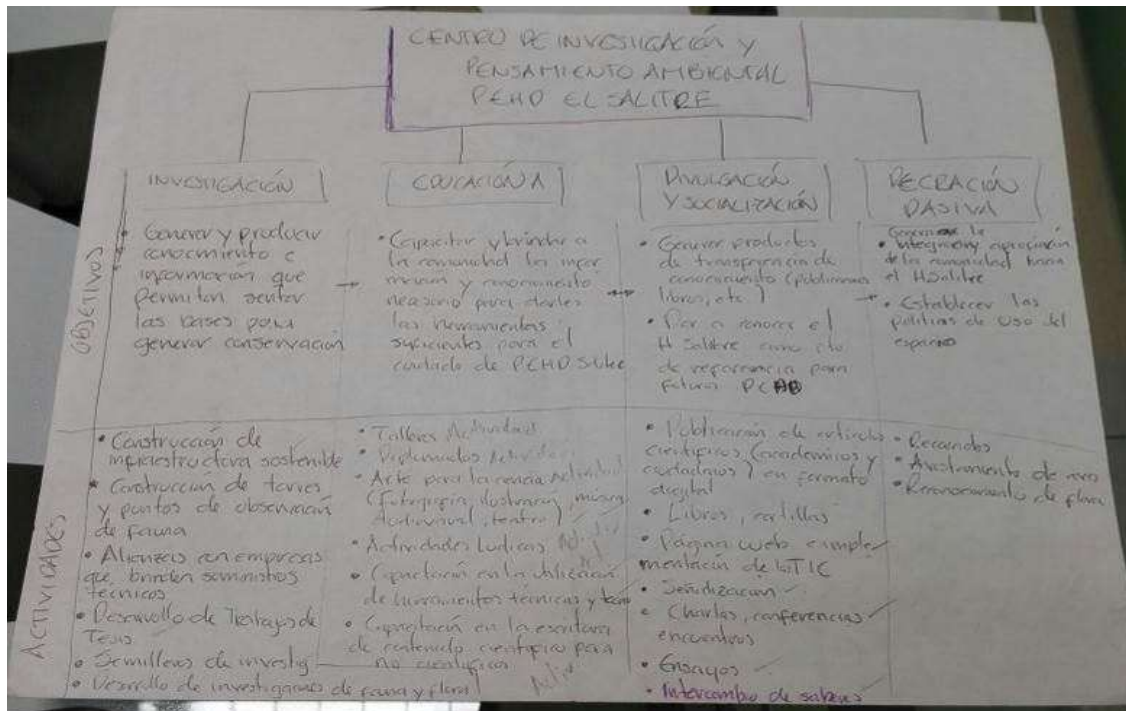 CENTRO DE INVESTIGACIÓN Y
PENSAMIENTO AMBIENTAL
PEHD EL SALITRE
INVESTIGACIÓN
EDUCACIÓN
DIVULGACIÓN
Y SOCIALIZACIÓN
RECREACIÓN
PASIVA
OBJETIVOS
• Generar y producir
conocimiento e
información que
permitan sentar
las bases para
generar conservación
• Capacitar y brindar a
la comunidad la
y conocimiento
necesario para darles
las herramientas
suficientes para el
cuidado de PEHD
• Generar productos
de transferencia de
conocimiento (publicaciones
libros, etc)
• Dar a conocer el
H Salitre como
de referencia para
futuros
Generar la
• integración y apropiación
de la comunidad hacia
el HSalitre
• Establecer las
políticas de uso del
espacio
ACTIVIDADES
• Construcción de
infraestructura sostenible
• Construcción de torres
y puntos de observación
de fauna
• Alianzas con empresas
que brinden suministros
técnicos
• Desarrollo de Trabajos de
Tesis
• Semilleros de investig
• Desarrollo de investigaciones de fauna y flora
• Talleres Actividad
• Diplomados
• Arte para la ciencia Actividad
(fotografía, ilustración, música,
audiovisual, teatro)
• Actividades Ludicas
• Capacitación en la utilización
de herramientas técnicas y
• Capacitación en la escritura
de contenido científico para
no científicos
• Publicación de artículos
científicos (académicos y
) en formato
digital
• Libros, cartillas
• Página web
mentación de
• Señalización
• Charlas, conferencias
encuentros
• Ensayos
• Intercambio de saberes
• Recorridos
• Avistamiento de aves
• Reconocimiento de flora